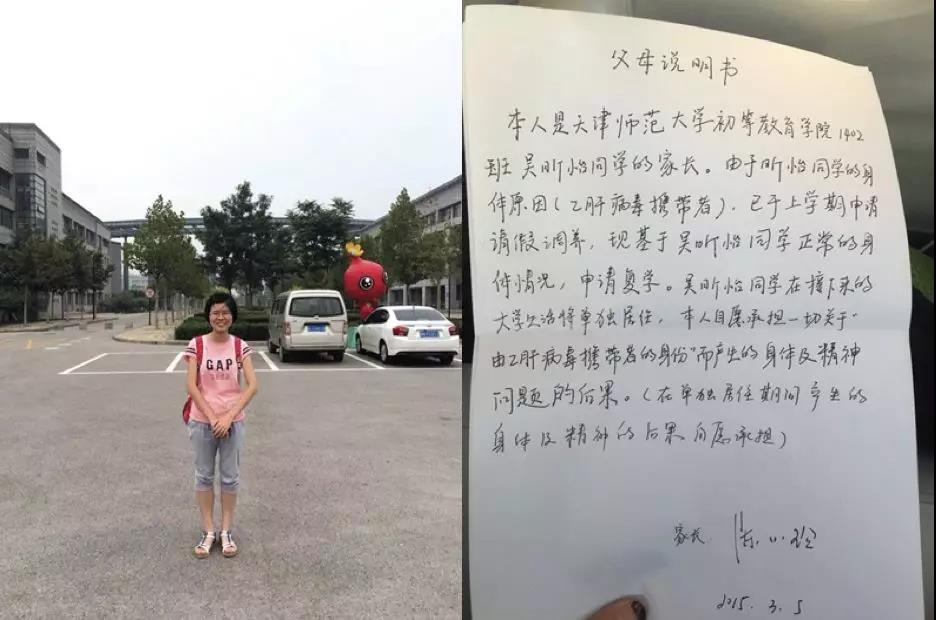 GAP
父母说明书
本人是天津师范大学初等教育学院1402
班吴昕怡同学的家长。由于昕怡同学的身
体原因(乙肝病毒携带者),已于上学期申请
请假调养,现基于吴昕怡同学正常的身
体情况,申请复学。吴昕怡同学在接下来的
大学生活将单独居住,本人自愿承担一切关于“
由乙肝病毒携带者的身份”而产生的身体及精神
问题的后果。(在单独居住期间产生的
身体及精神的后果自愿承担)
家长
2015.3.5